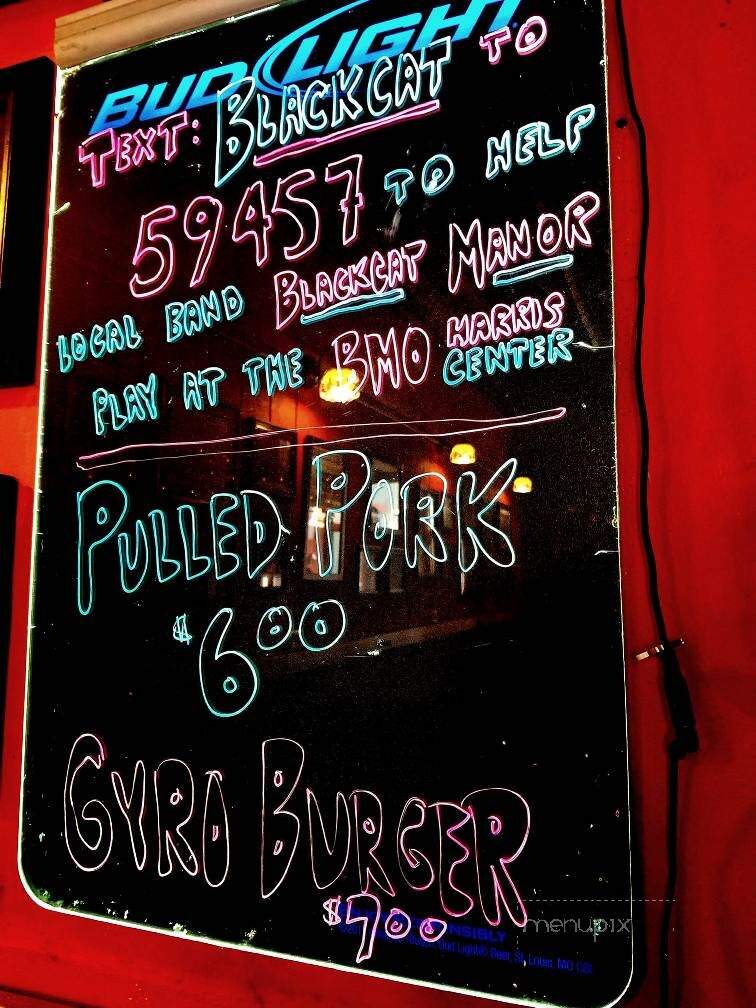 BUD LIGHT
TEXT: BLACKCAT TO
59457 TO HELP
LOCAL BAND BLACKCAT MANOR
PLAY AT THE BMO HARRIS CENTER
PULLED PORK
$6.00
GYRO BURGER
$7.00
menupix